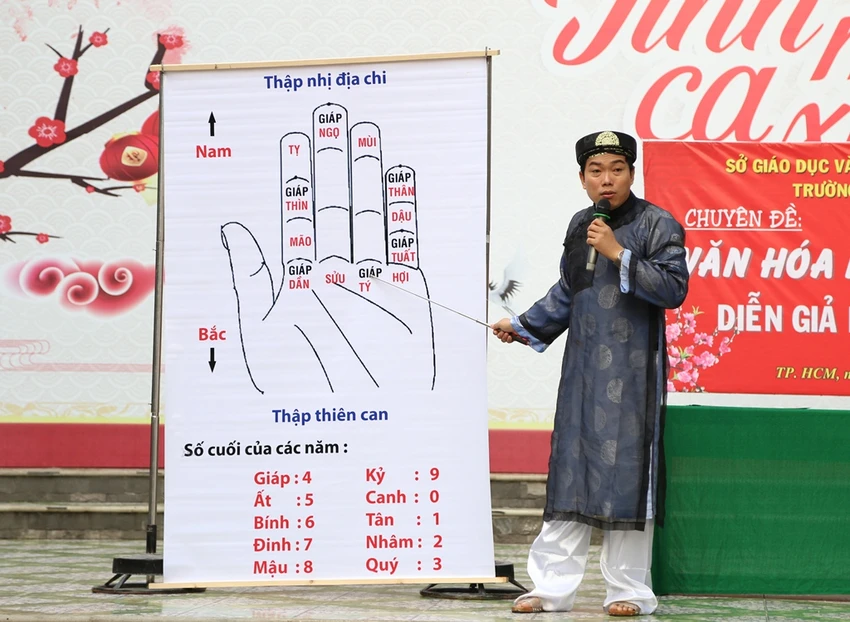 Thập nhị địa chi
Nam
GIÁP
NGỌ
MÙI
TỴ
GIÁP
THÌN
GIÁP
THÂN
MÃO
DẬU
GIÁP
TUẤT
GIÁP
DẦN
SỬU
GIÁP
TÝ
HỢI
Bắc
Thập thiên can
Số cuối của các năm :
Giáp : 4
Ất : 5
Bính : 6
Đinh : 7
Mậu : 8
Kỷ : 9
Canh : 0
Tân : 1
Nhâm : 2
Quý : 3
ca
SỞ GIÁO DỤC VÀ
TRƯỜNG
CHUYÊN ĐỀ:
VĂN HÓA
DIỄN GIẢ
TP. HCM,